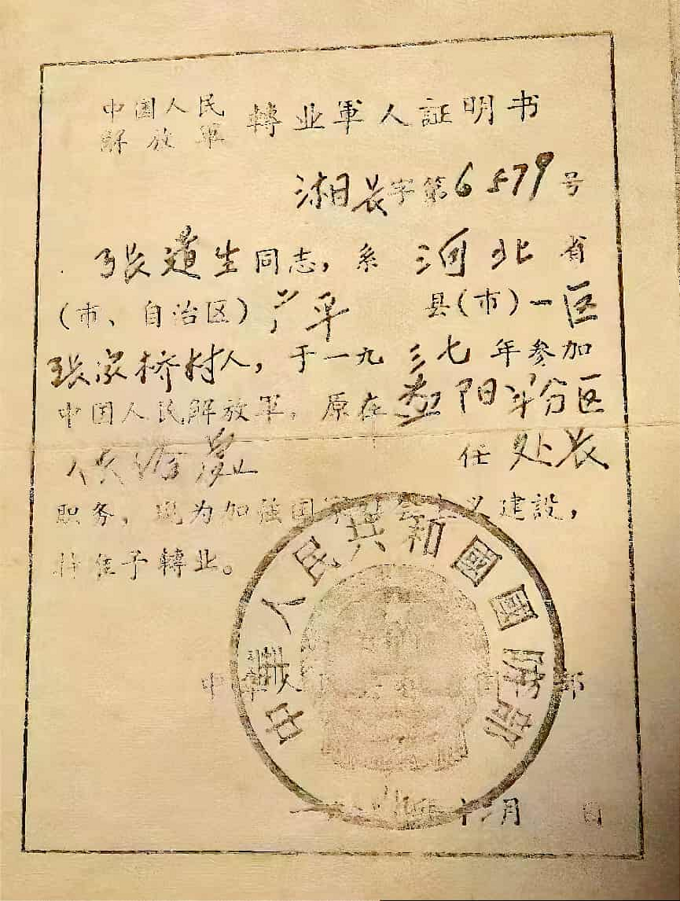 中国人民
解放軍 轉业軍人証明书
湘日长字第6579号
张道生同志，系 河北 省
（市、自治区） 县（市）一区
张家桥村人，于一九三七年参加
中国人民解放軍。原在益阳军分区
任 处长
职务，现为加强国家社会主义建設，
特准予轉业。
中华人民共和国国防部
中華人民共和國國防部
一九 年十二月 日